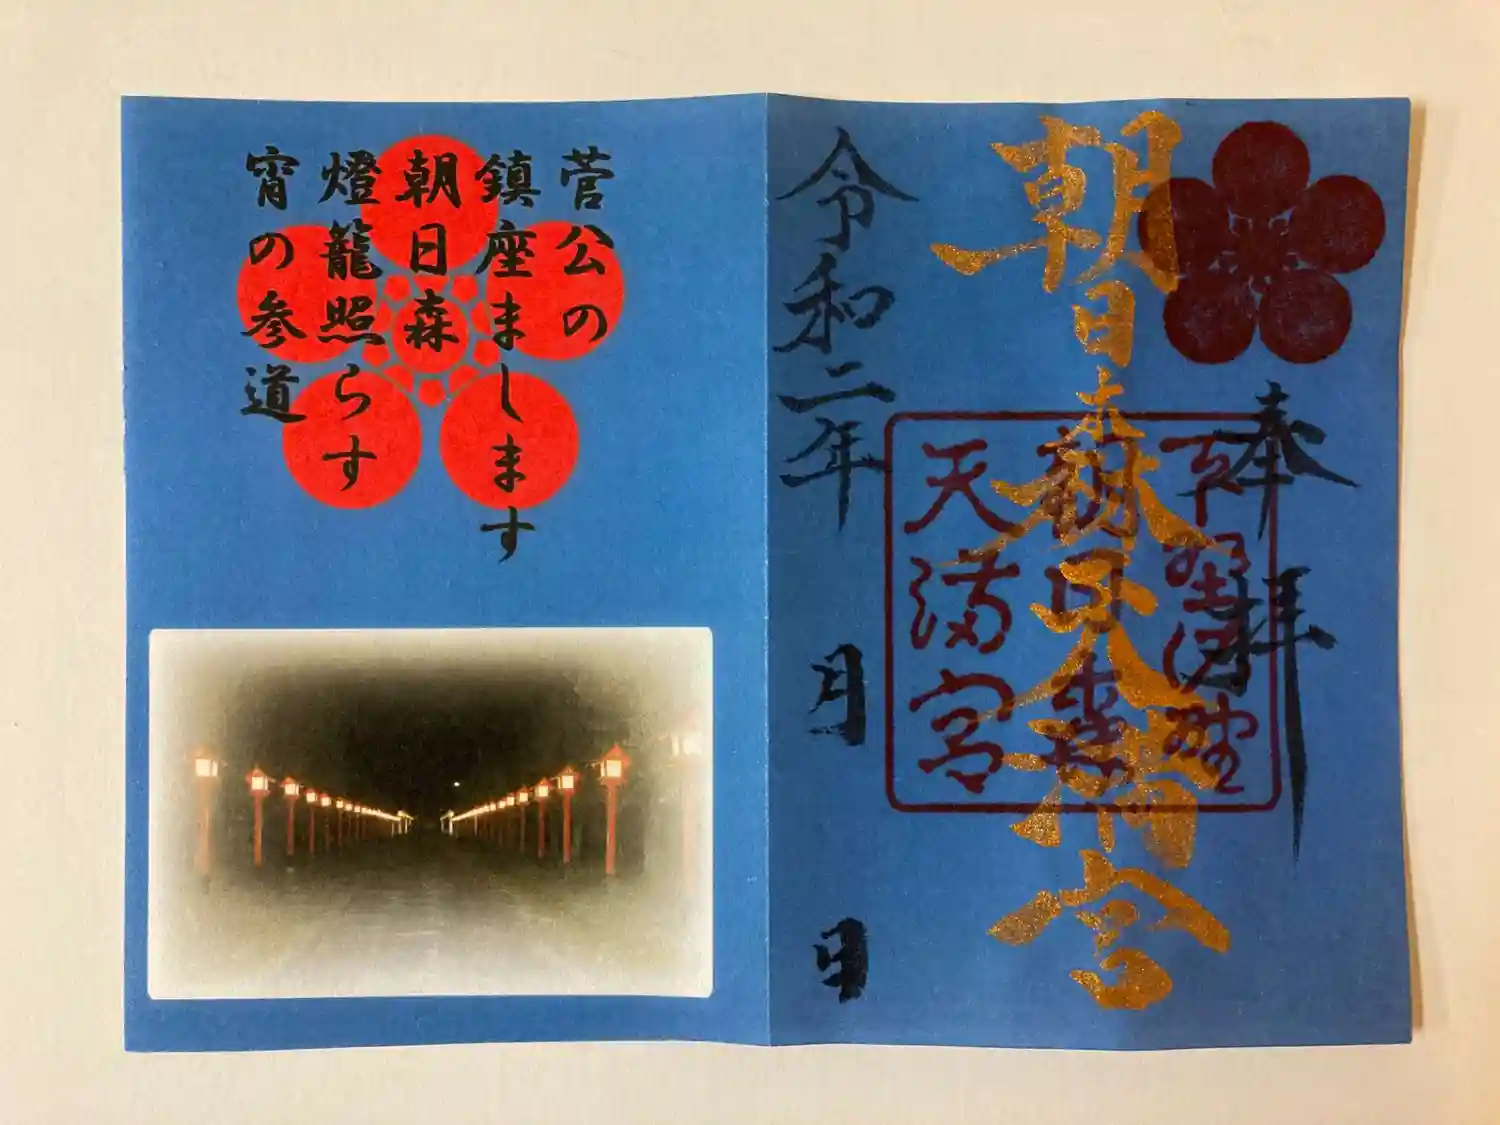 奉拝
朝日森天満宮
下野佐野
朝日森
天満宮
令和二年 月 日
菅公の
鎮座まします
朝日森
燈籠照らす
宵の参道